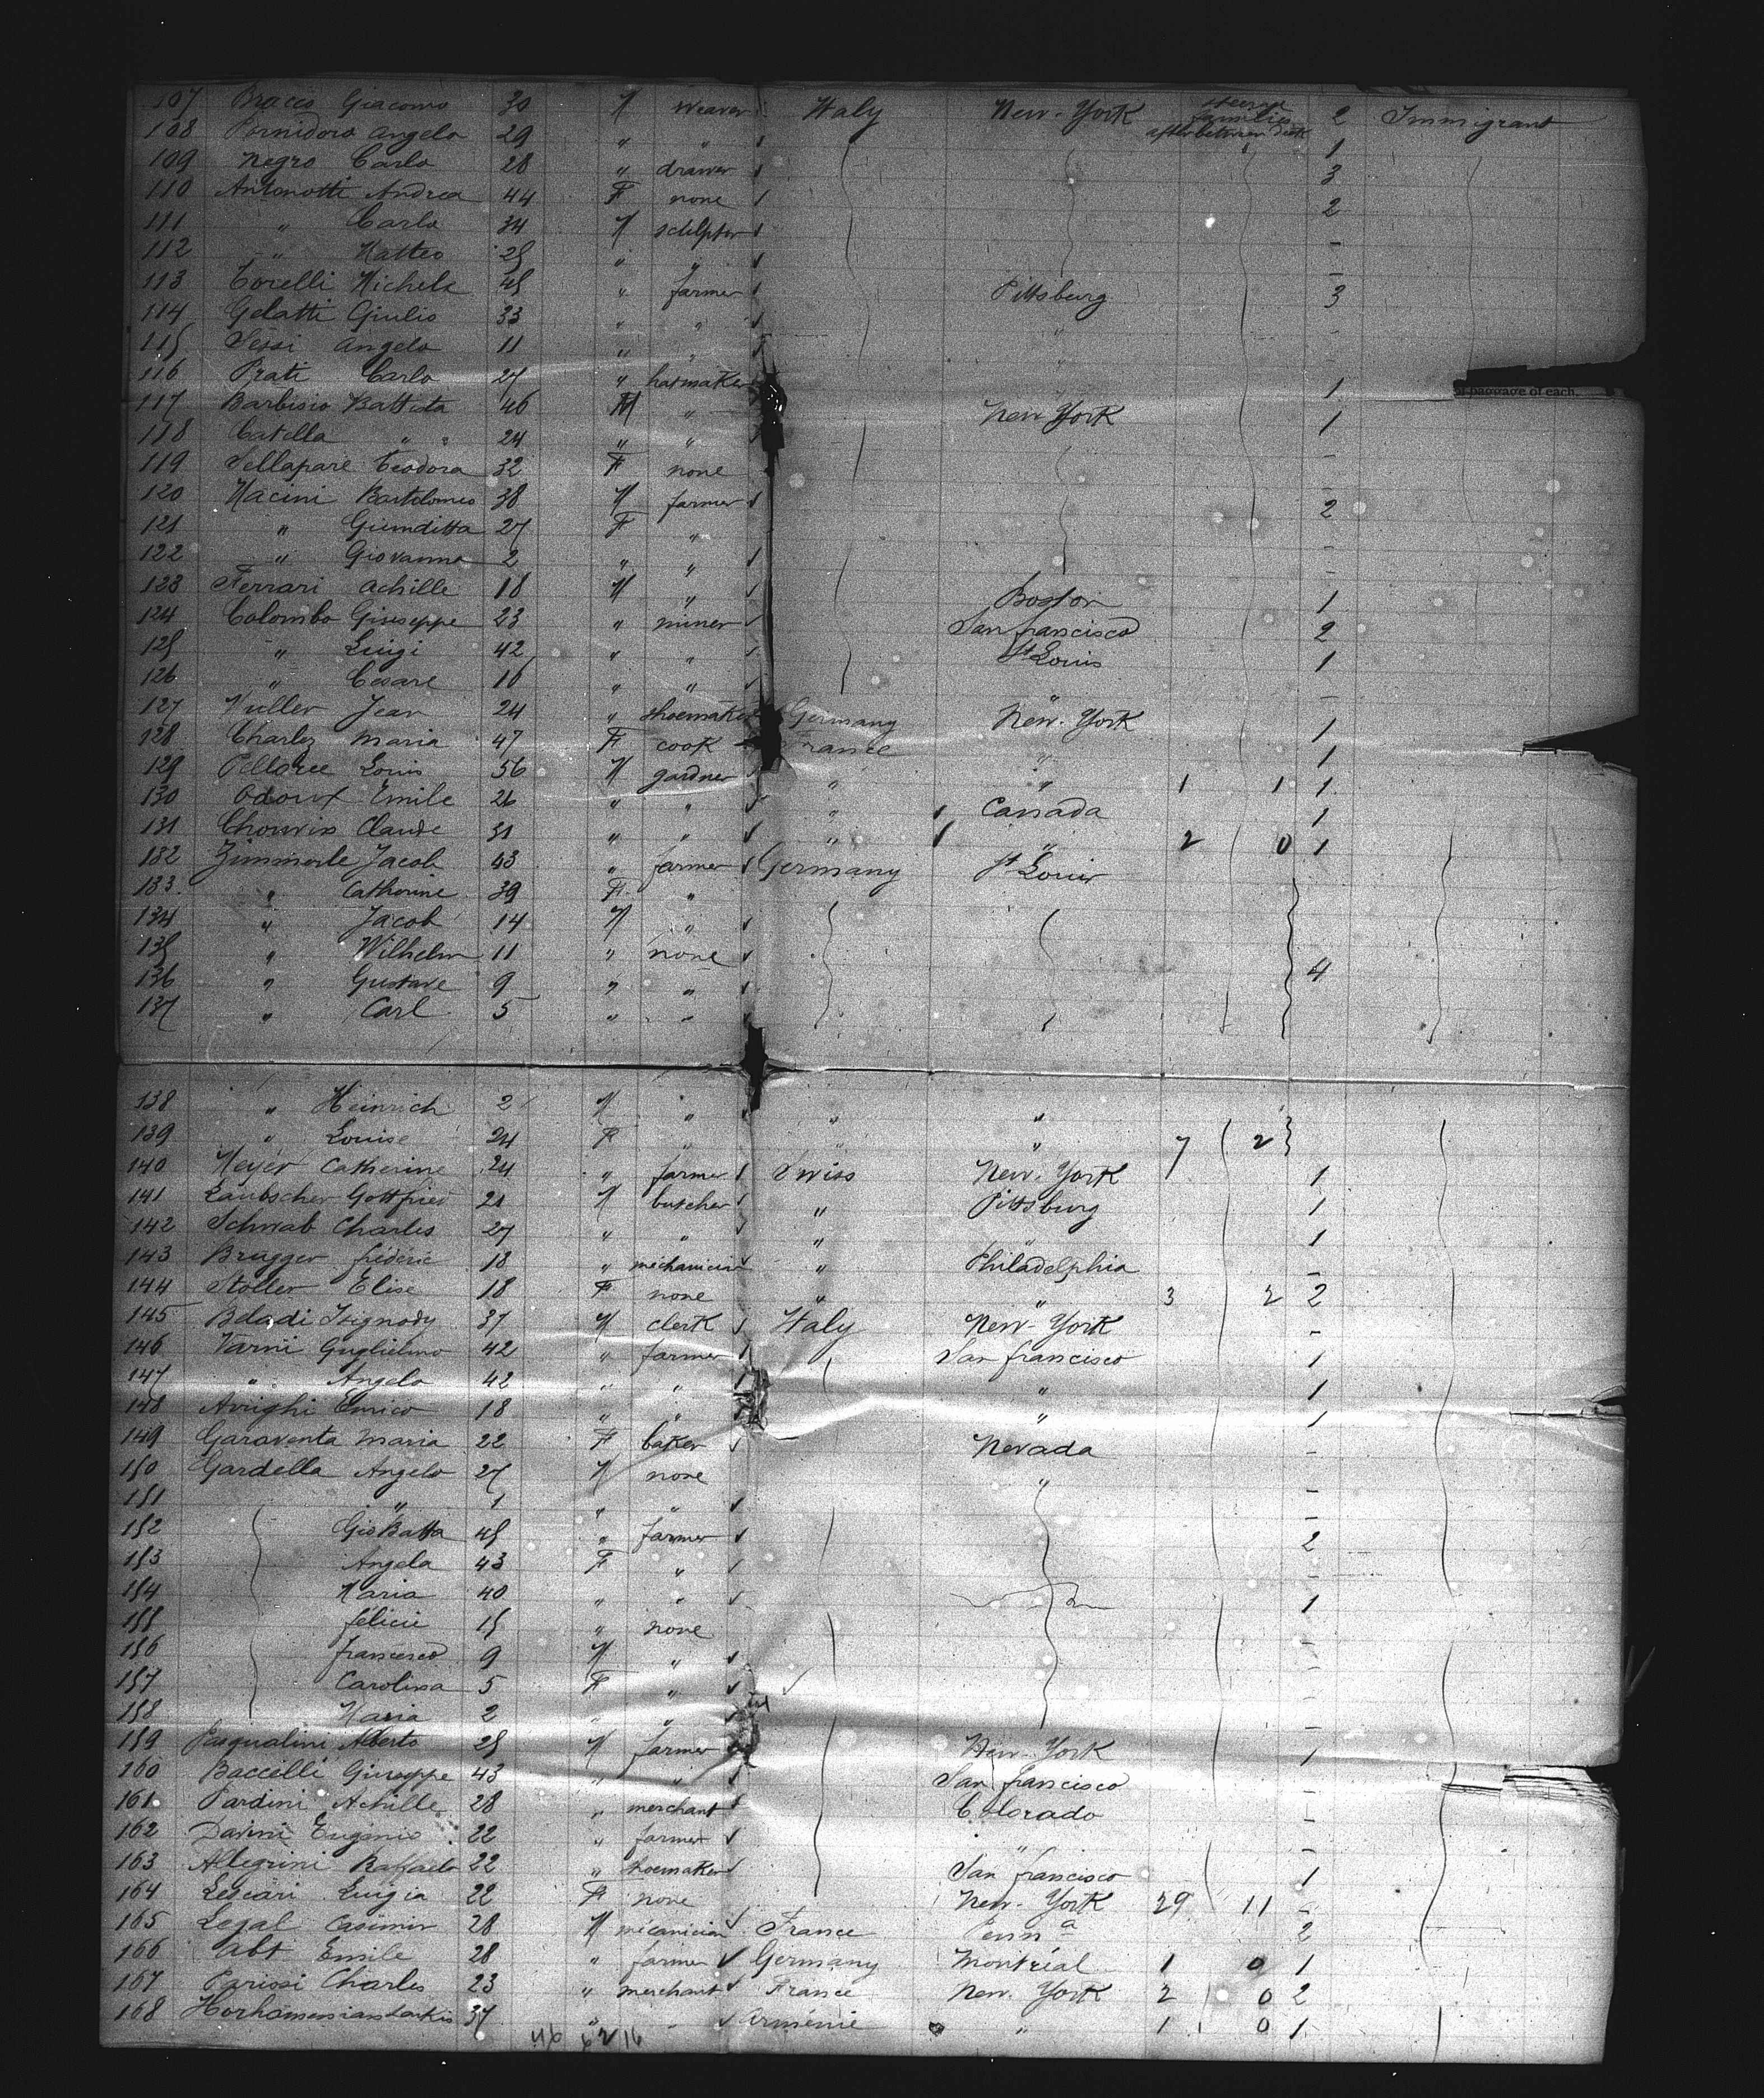 107 Bracco Giacomo 30 M Weaver Italy New-York Steerage families after between deck 2 Immigrant
108 Pomidoro Angelo 29 " " 1
109 Negro Carlo 28 " drawer 3
110 Antonotti Andrea 44 F none 2
111 " Carlo 34 M sculptor -
112 " Matteo 25 " " -
113 Torelli Michele 45 " farmer Pittsburg 3
114 Gelatti Giulio 33 " " " -
115 Sessi Angelo 11 " " " -
116 Prati Carlo 27 " hatmaker " 1
of baggage of each
117 Barbisio Battista 46 M " New-York 1
118 Catella " " 24 " " -
119 Sellapare Teodora 32 F none -
120 Macini Bartolomeo 38 M farmer 2
121 " Giunditta 27 F " -
122 " Giovanna 2 " " -
123 Ferrari Achille 18 M " Boston 1
124 Colombo Giuseppe 23 " miner San francisco 2
125 " Luigi 42 " " St Louis 1
126 " Cesare 16 " " " -
127 Muller Jean 24 " shoemaker Germany New-York 1
128 Charley Maria 47 F cook France " 1
129 Louis 56 M gardner " " 1 1 1
130 Emile 26 " " " Canada 1
131 Claude 31 " " " " 2 0 1
132 Zimmerle Jacob 43 " farmer Germany St Louis
133 " Catherine 39 F "
134 " Jacob 14 M "
135 " Wilhelm 11 " none
136 " Gustave 9 " " 4
137 " Carl 5 " "
138 " Heinrich 2 M " " "
139 " Louise 24 F " " " 7 2
140 Meyer Catherine 24 " farmer Swiss New-York 1
141 Laubscher Gottfried 21 M butcher " Pittsburg 1
142 Schwab Charles 27 " " " " 1
143 Brugger fréderic 18 " méchanician " Philadelphia -
144 Stoller Elise 18 F none " " 3 2 2
145 Beladi 37 M clerk Italy New-York -
146 Varni Guglielmo 42 " farmer San francisco 1
147 " Angelo 42 " " " 1
148 Arrighi Enrico 18 " " " 1
149 Garaventa Maria 22 F baker Nevada -
150 Gardella Angelo 27 M none " -
151 " 1 " " -
152 Gio Batta 45 " farmer 2
153 Angela 43 F " -
154 Maria 40 " " 1
155 felicie 15 " none -
156 francesco 9 M " -
157 Carolina 5 F " -
158 Maria 2 " " -
159 Pasqualini Alberto 25 M farmer New-York 1
160 Baccelli Giuseppe 43 " " San francisco -
161 Pardini Achille 28 " merchant Colorado -
162 Davini Eugenio 22 " farmer " -
163 Allegrini Raffaelo 22 " shoemaker San francisco 1
164 Lescari Luigia 22 F none New-York 29 11 -
165 Legal Casimir 28 M mécanician France Penna 2
166 Abt Emile 28 " farmer Germany Montréal 1 0 1
167 Pariosi Charles 23 " merchant France New-York 2 0 2
168 37 " - Arménie " 1 0 1
46 62 16